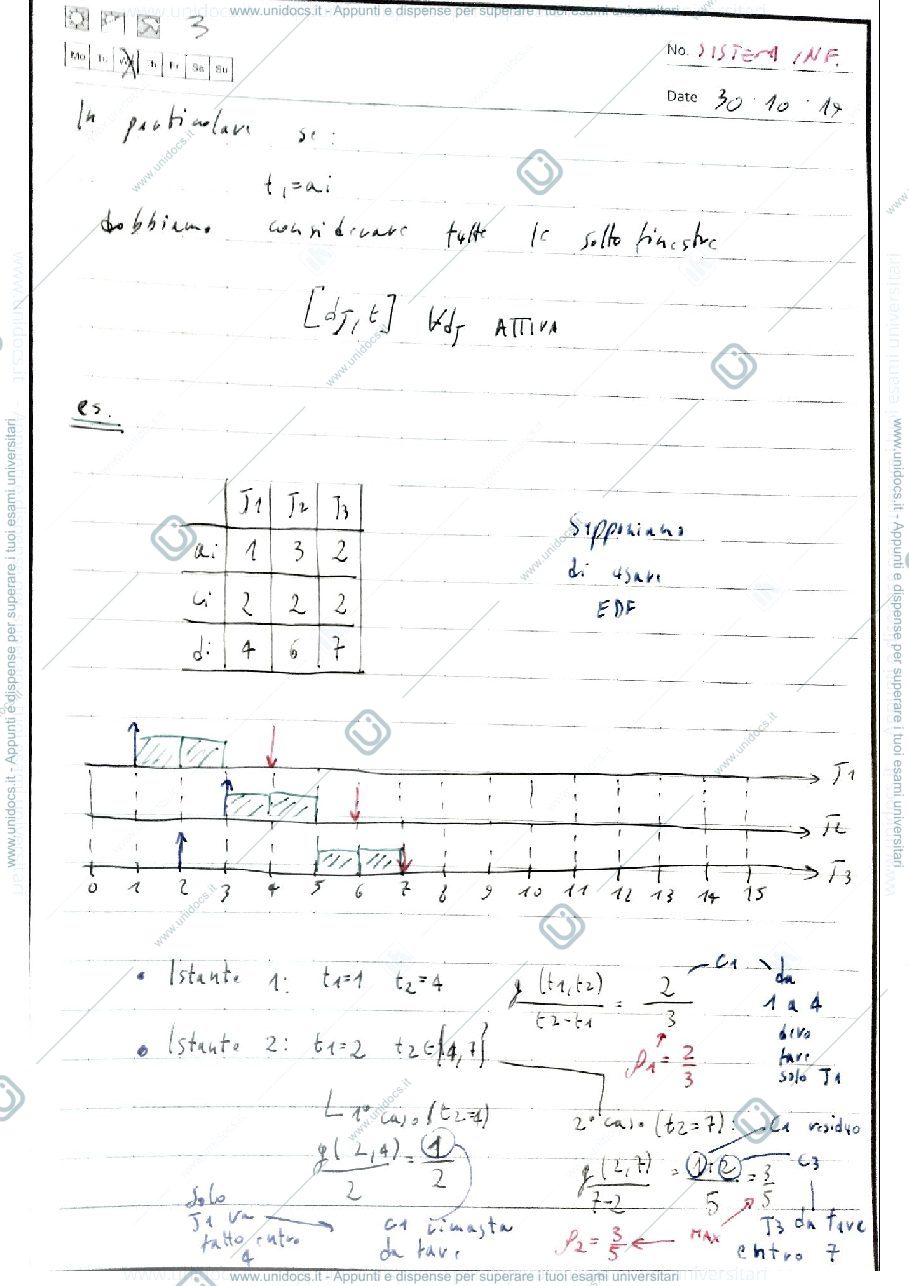 www.unidocs.it - Appunti e dispense per superare i tuoi esami universitari
3
Mo Tu We Th Fr Sa Su
No. SISTEMI INF.
Date 30 · 10 · 19
In particolare se:
t1=ai
dobbiamo considerare tutte le sottofinestre
[dJ, t] ∀dJ ATTIVA
es.
J1 J2 J3
ai 1 3 2
ci 2 2 2
di 4 6 7
Supponiamo
di usare
EDF
J1
J2
J3
0 1 2 3 4 5 6 7 8 9 10 11 12 13 14 15
• Istante 1: t1=1 t2=4
g(t1,t2)/t2-t1 = 2/3
C1
da
1 a 4
devo
fare
solo J1
ρ1 = 2/3
• Istante 2: t1=2 t2∈{4,7}
1° caso (t2=4)
g(2,4)/2 = 1/2
Solo
J1 va
fatto entro
4
C1 rimasta
da fare
2° caso (t2=7):
C1 residuo
g(2,7)/7-2 = 1+2/5 = 3/5
C3
ρ2 = 3/5
MAX
J3 da fare
entro 7
www.unidocs.it - Appunti e dispense per superare i tuoi esami universitari